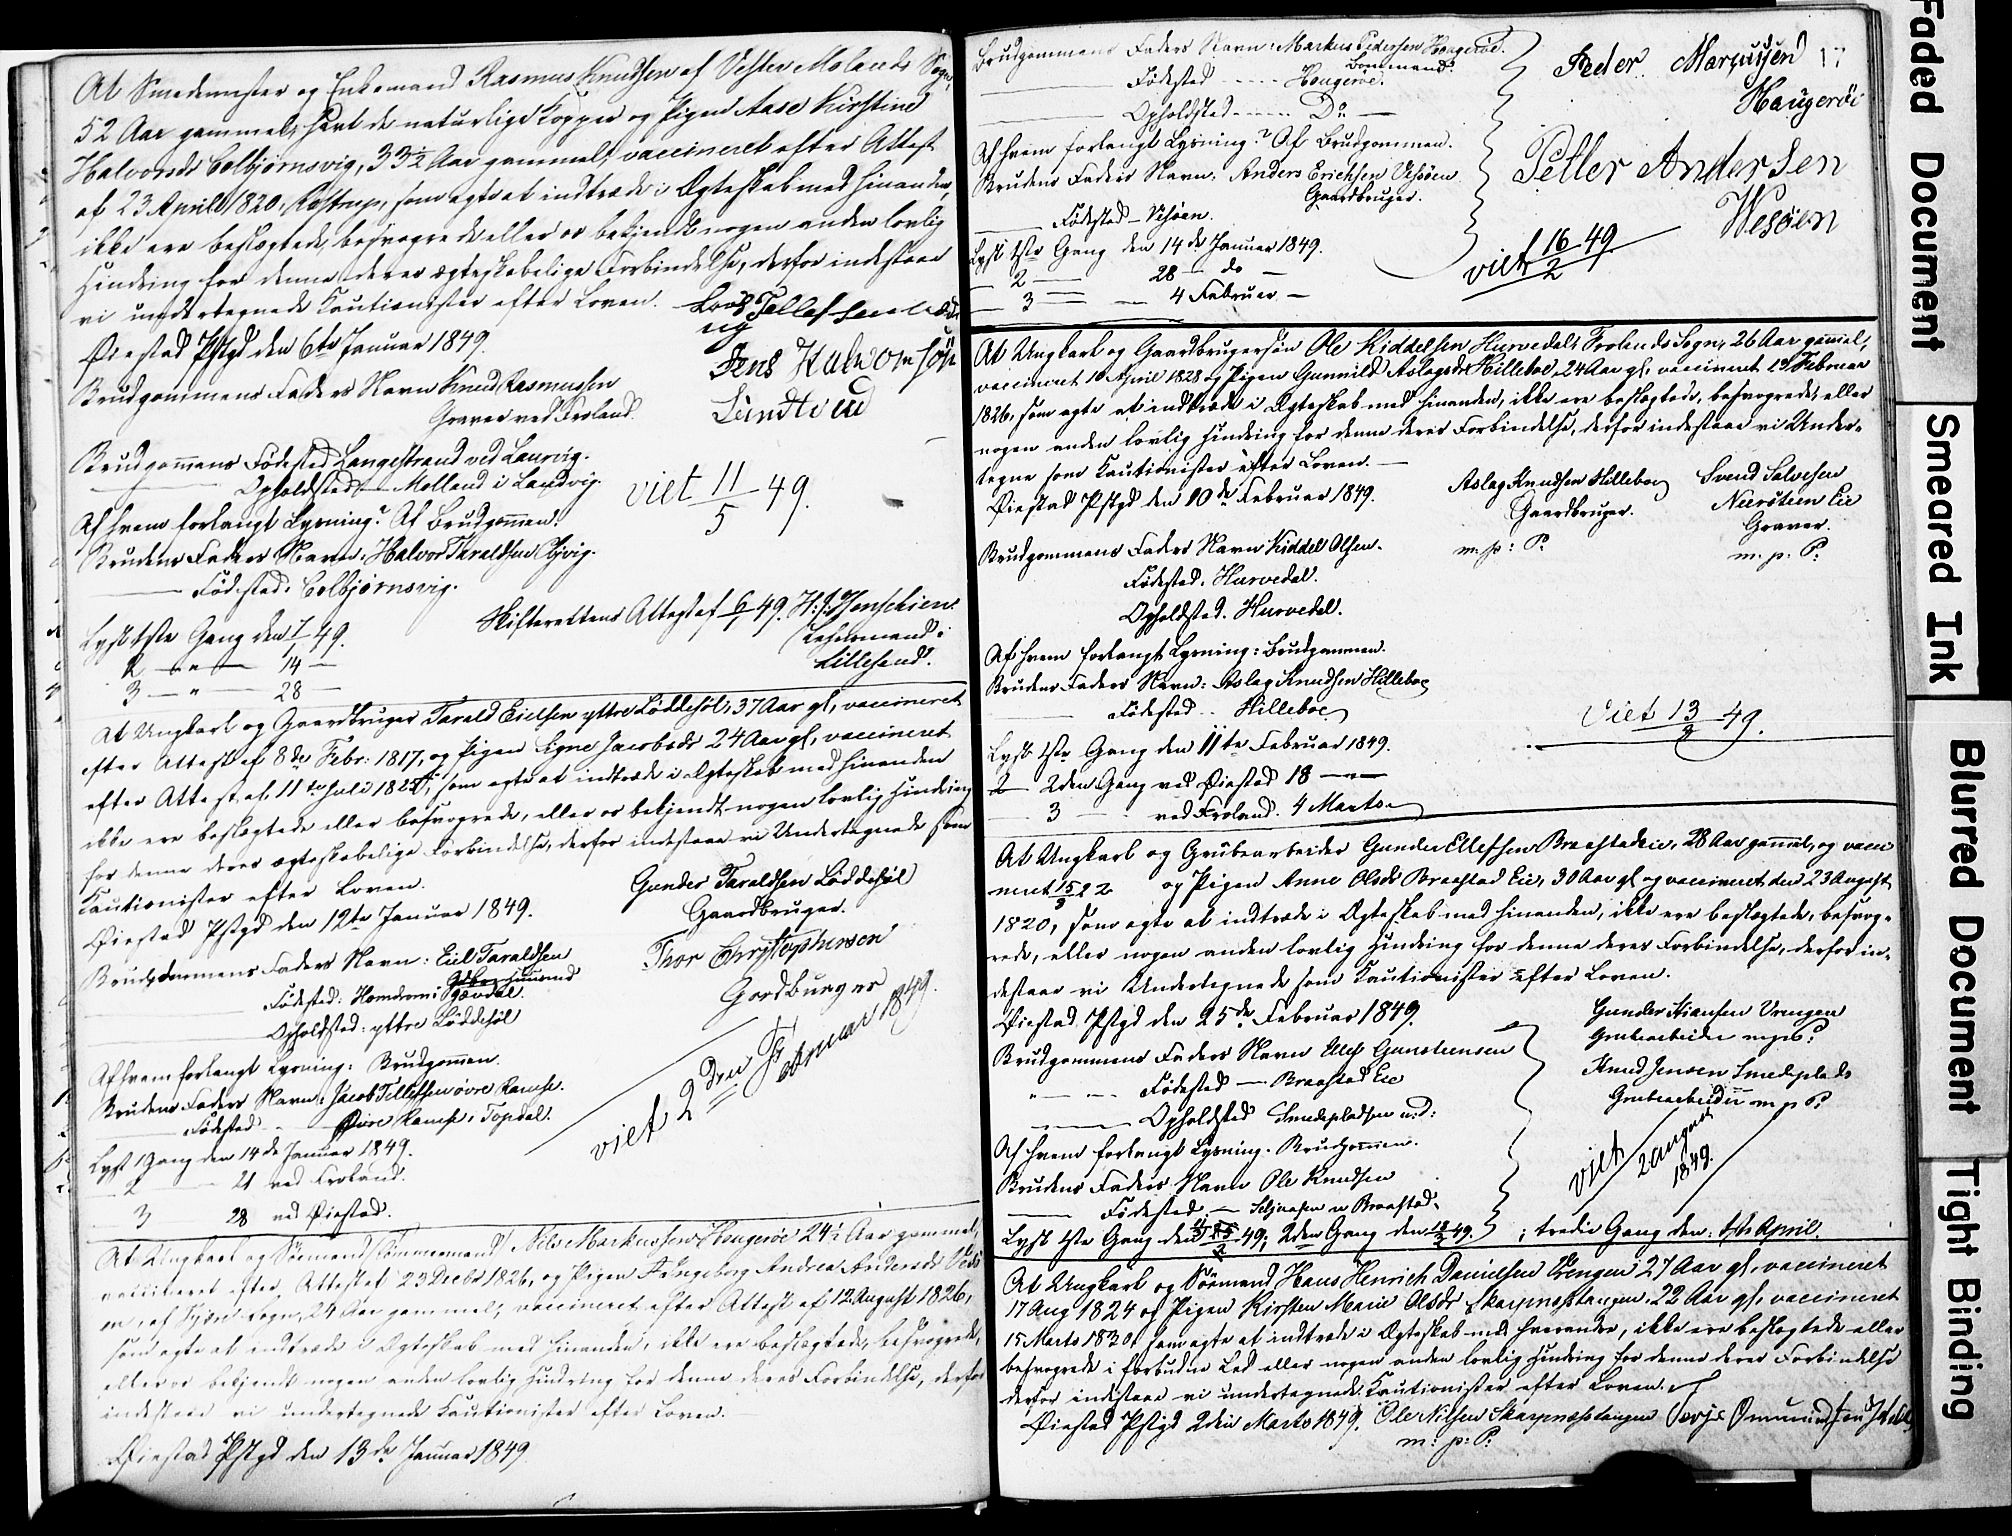 At Smedemester og Enkemand Rasmus Knudsen af Vester Molands Sogn,
52 Aar gammel, havt de naturlige Kopper og Pigen Aase Kirstine
Halvorsdr Colbjørnsvig, 33½ Aar gammel, vaccineret efter Attest
af 23 April 1820, som agte at indtræde i Ægteskab med hinanden,
ikke ere beslægtede, besvogrede eller os bekjendt nogen anden lovlig
Hindring for denne deres ægteskabelige Forbindelse, derfor indestaae
vi undertegnede Kautionister efter Loven.
Øiestad Pstgd den 6te Januar 1849.
Jens Halvorsøn
Brudgommens Faders Navn Knud Rasmussen
Graver ved Froland.
Lundtved
Brudgommens Fødested Langestrand ved Laurvig.
Opholdsted Molland i Landvig.
viet 11/5 49.
Af hvem forlangt Lysning? Af Brudgommen.
Brudens Faders Navn, Halvor Taraldsen
Fødested, Colbjørnsvig.
Skifterettens Attest af 6/1 49. H. J. Henschien
Lehnsmand i
Lillesand.
Lyst 1ste Gang den 7/1 49.
2 — " — 14 —
3 — " — 28 —
At Ungkarl og Gaardbruger Tarald Eielsen yttre Løddesøl, 37 Aar gl, vaccineret
efter Attest af 8de Febr. 1817, og Pigen Signe Jacobsdr 24 Aar gl, vaccineret
efter Attest af 11te Juli 182, som agte at indtræde i Ægteskab med hinanden
ikke ere beslægtede eller besvogrede, eller os bekjendt nogen lovlig Hindring
for denne deres ægteskabelige Forbindelse, derfor indestaae vi Undertegnede som
Kautionister efter Loven.
Øiestad Pstgd den 12te Januar 1849.
Gunder Taraldsen Løddesøl
Gaardbruger.
Brudgommens Faders Navn: Eiel Taraldsen
Thor Christophersen
Gordbruger
Fødested: Homdrom i Gjøvdal.
Opholdsted: yttre Løddesøl
Af hvem forlangt Lysning: Brudgommen.
Brudens Faders Navn: Jacob Tellefsen øvre Ramse.
Fødested - Øvre Ramse i Topdal.
viet 2den Februar 1849.
Lyst 1 Gang den 14de Januar 1849.
2 — 21 ved Froland.
3 — 28 ved Øiestad.
At Ungkarl og Sømand /Tømmermand/ Nils Markussen Haugerøe 24½ Aar gammel,
vaccineret efter Attest af 23 Decbr 1826, og Pigen Ingeborg Andrea Andersdr Vesø
en, af Sogn, 24 Aar gammel, vaccineret efter Attest af 12 August 1826,
som agte at indtræde i Ægteskab med hinanden, ikke ere beslægtede, besvogrede,
eller os bekjendt nogen anden lovlig Hindring for denne deres Forbindelse, derfor
indestaae vi undertegnede Kautionister efter Loven.
Øiestad Pstgd den 13de Januar 1849
Brudgommens Faders Navn: Markus Pedersen Haugerøe.
Bommand.
Fødested - - - - Haugerøe.
Opholdsted - - - - Do —
Peder Marcussen
Haugerøi
Af hvem forlangt Lysning? Af Brudgommen.
Brudens Faders Navn: Anders Erichsen Vesøen
Gaardbruger.
Fødested - Vesøen.
Petter Andersen
Wesøen
Lyst 1ste Gang den 14de Januar 1849.
2 — 28 — do —
3 — 4 Februar —
viet 16/2 49
At Ungkarl og Gaardbrugersøn Ole Kiddelsen Hurvedal, Frolands Sogn, 26 Aar gammel,
vaccineret 10 April 1828 og Pigen Gunnild Aslagsdr Hilleboe, 24 Aar gl, vaccineret 19 Februar
1826, som agte at indtræde i Ægteskab med hinanden, ikke ere beslægtede, besvogrede, eller
nogen anden lovlig Hindring for denne deres Forbindelse, derfor indestaae vi Under-
tegne som Kautionister efter Loven. —
Øiestad Pstgd den 10de Februar 1849.
Aslag Knudsen Hilleboe
Gaardbruger.
m. p: P:
Svend Salvesen
Neersteen Eie
Graver.
m. p: P:
Brudgommens Faders Navn Kiddel Olsen.
Fødested. Hurvedal.
Opholdsted. Hurvedal.
Af hvem forlangt Lysning: Brudgommen.
Brudens Faders Navn: Aslag Knudsen Hilleboe
Fødested.. Hilleboe
Viet 13/3 49.
Lyst 1ste Gang den 11te Februar 1849.
2den Gang ved Øiestad 18 —
3 — ved Froland. 4 Marts
At Ungkarl og Grubearbeider Gunder Ellefsen Braastadeie, 28 Aar gammel, og vacci
neret og Pigen Anne Olsdr Braastad Eie, 30 Aar gl og vaccineret den 23 August
1820, som agte at indtræde i Ægteskab med hinanden, ikke ere beslægtede, besvog-
rede, eller nogen anden lovlig Hindring for denne deres Forbindelse, derfor in-
destaae vi Undertegnede som Kautionister efter Loven.
Øiestad Pstgd den 25de Februar 1849.
Gunder Hansen Vrengen
Grubearbeider m p P:
Brudgommens Faders Navn Ellef Gunsteensen
Knud Jensen Smedplads
Grubearbeider m p P:
Fødested — Braastad Eie
Opholdsted Smedepladsen
Af hvem forlangt Lysning. Brudgommen.
viet 2 August 1849.
Brudens Faders Navn Ole Knudsen
Fødested — Braastad.
Lyst 1ste Gang den 49; 2den Gang den 18/3 49. ; tredie Gang den. 1ste April.
At Ungkarl og Sømand Hans Henrich Danielsen Vrengen 27 Aar gl, vaccineret
17 Aug 1824 og Pigen Kirsten Marie Olsdr Skarpnæstangen, 22 Aar gl, vaccineret
15 Marts 1830, som agte at indtræde i Ægteskab med hverandre, ikke ere beslægtede eller
besvogrede i forbudne Led eller nogen anden lovlig Hindring for denne deres Forbindelse
derfor indestaae vi undertegnede Kautionister efter Loven.
Øiestad Pstgd 2den Marts 1849. Ole Nilsen Skarpnæstangen
m: p: P:
Faded Document
Smeared Ink
Blurred Document
Tight Binding